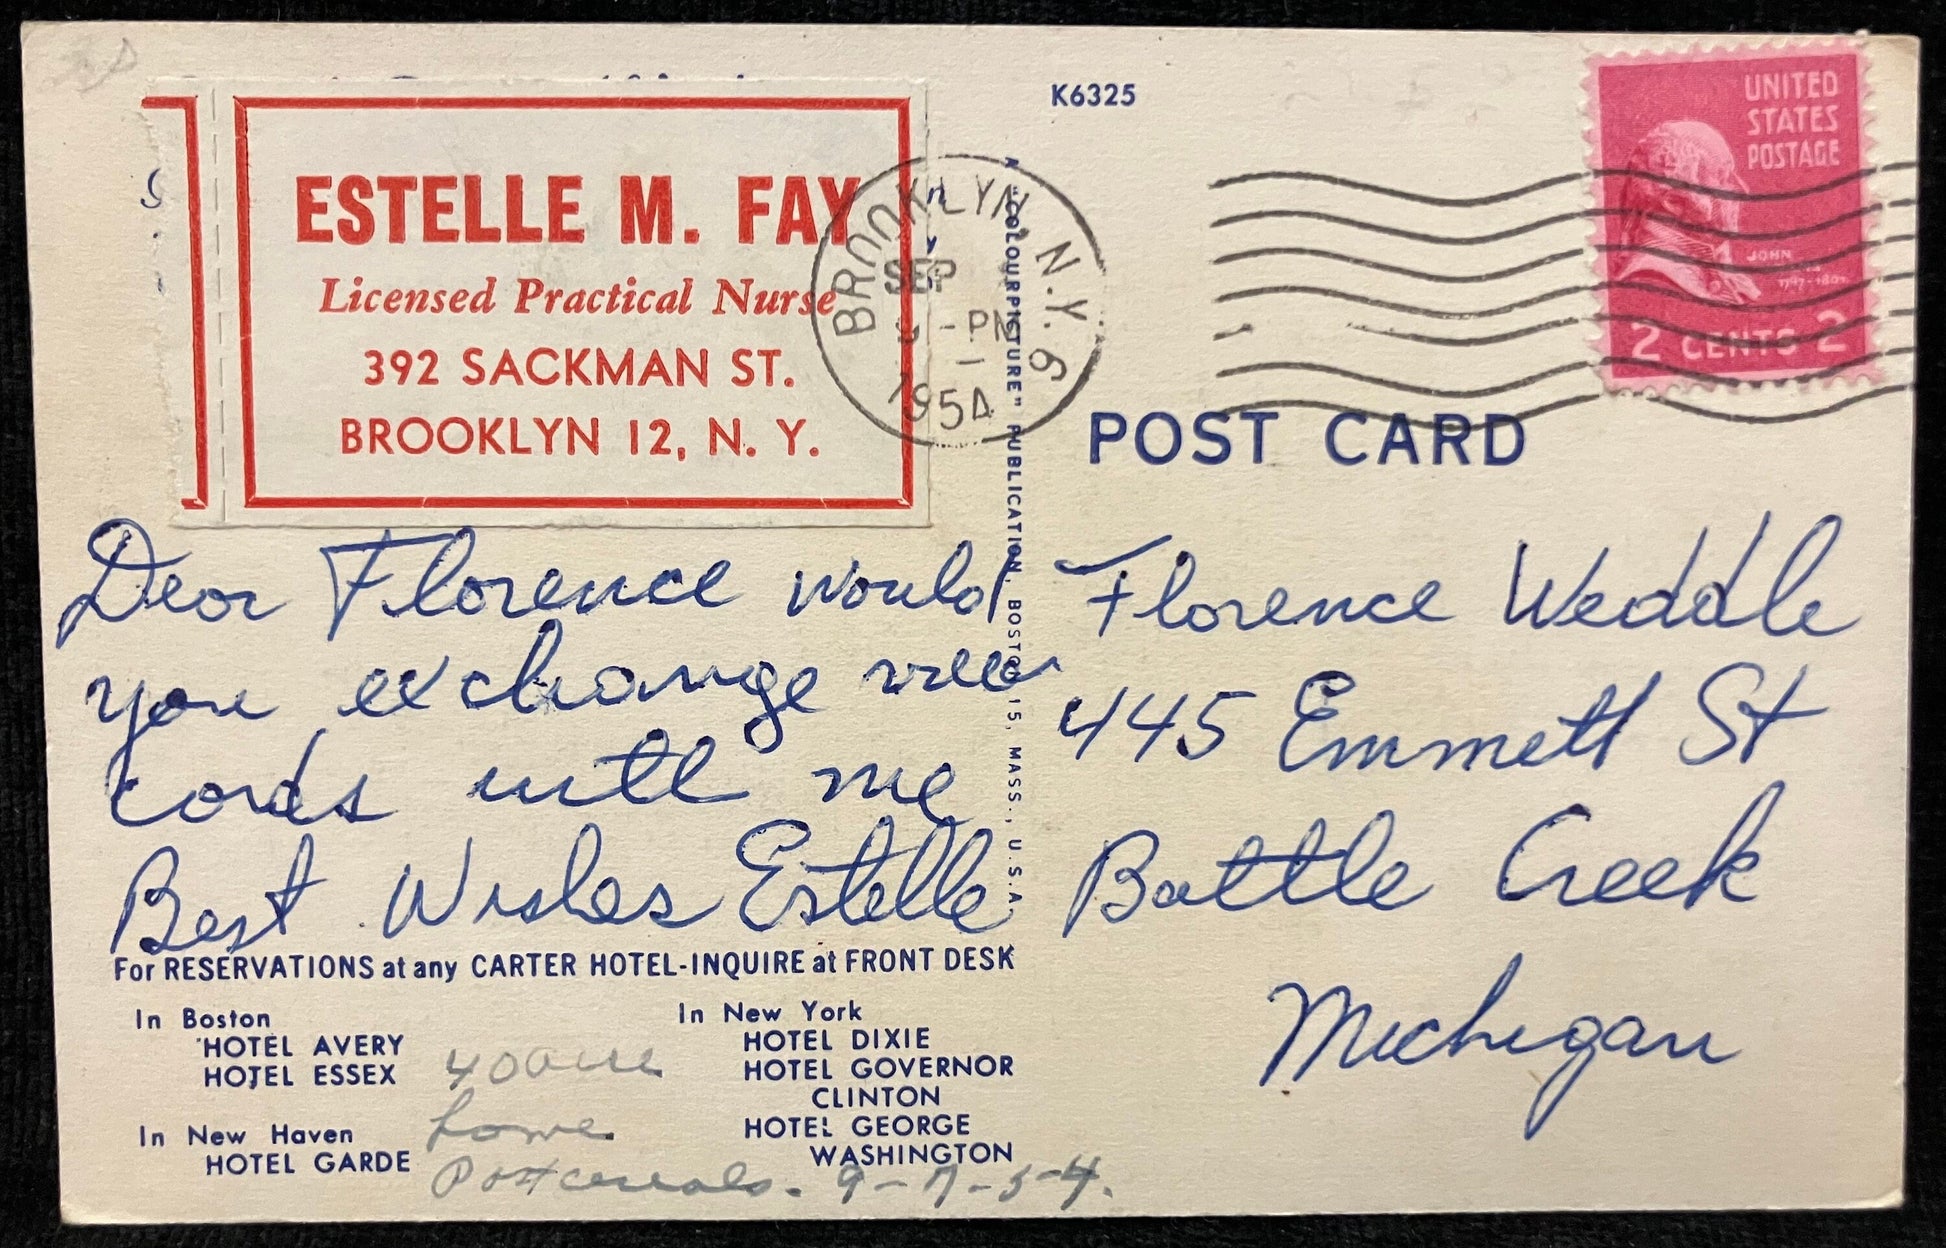 K6325
UNITED
STATES
POSTAGE
JOHN
2 CENTS 2
ESTELLE M. FAY
Licensed Practical Nurse
392 SACKMAN ST.
BROOKLYN 12, N. Y.
BROOKLYN, N.Y. 6
SEP
-PM
1954
A "COLOURPICTURE" PUBLICATION, BOSTON 15, MASS., U.S.A.
POST CARD
Dear Florence would
you exchange view
cards with me
Best Wishes Estelle
Florence Weddle
445 Emmett St
Battle Creek
Michigan
For RESERVATIONS at any CARTER HOTEL-INQUIRE at FRONT DESK
In Boston
HOTEL AVERY
HOTEL ESSEX
In New Haven
HOTEL GARDE
In New York
HOTEL DIXIE
HOTEL GOVERNOR
CLINTON
HOTEL GEORGE
WASHINGTON
home
Post cereals. 9-7-54.